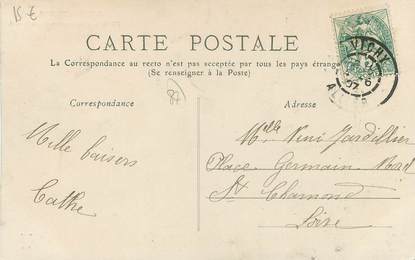 15 €
CARTE POSTALE
La Correspondance au recto n'est pas acceptée par tous les pays étrang
(Se renseigner à la Poste)
VICHY
07
Correspondance
Adresse
Mille baisers
Mlle Nini Jardillier
Place Germain
St Chamond
Loire